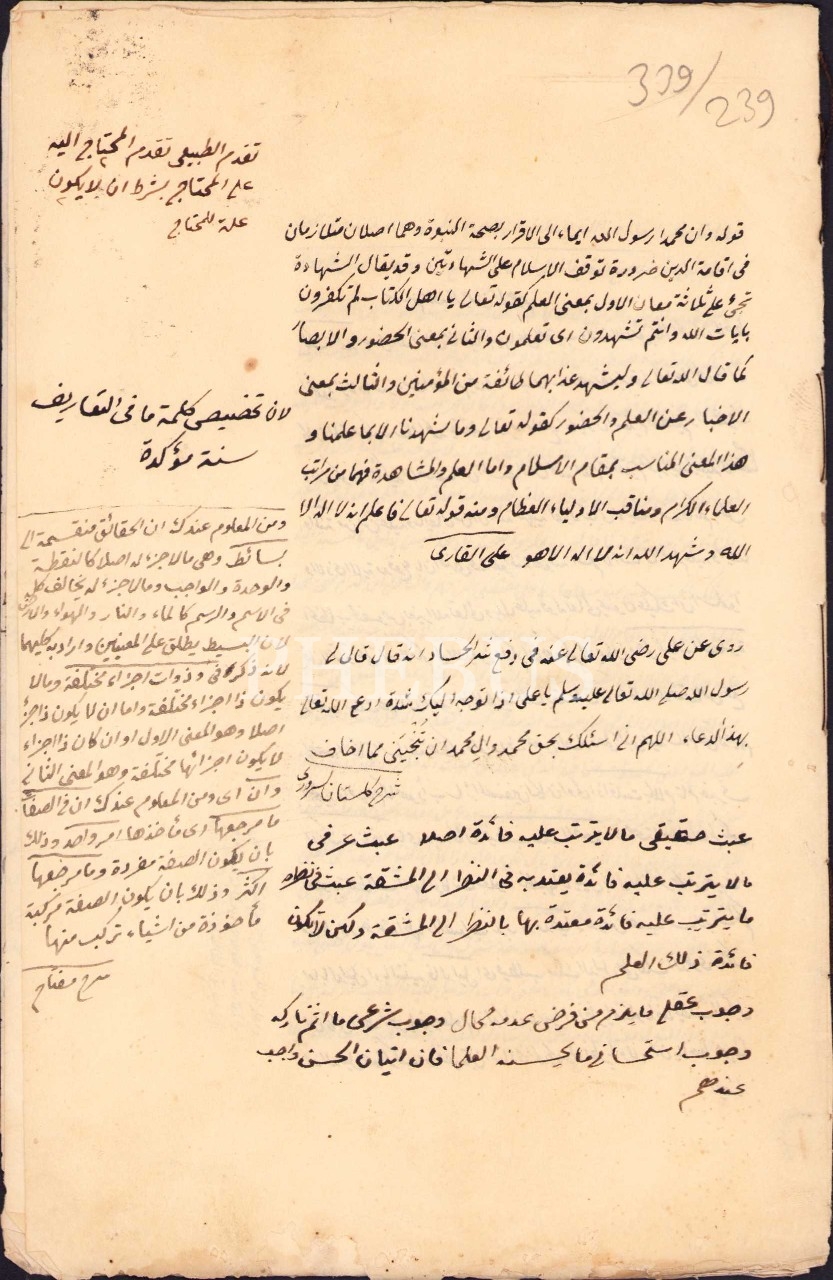 339/239
تقدم الطبيعى تقدم المحتاج اليه
على المحتاج بشرط ان لا يكون
علة للمحتاج
قوله وان محمدا رسول الله ايماء الى الاقرار بصحة النبوة وهما اصلان متلازمان
فى اقامة الدين ضرورة توقف الاسلام على الشهادتين وقد يقال الشهادة
تجئ على ثلاثة معان الاول بمعنى العلم كقوله تعالى يا اهل الكتاب لم تكفرون
بايات الله وانتم تشهدون اى تعلمون والثانى بمعنى الحضور والابصار
كما قال الله تعالى وليشهد عذابهما طائفة من المؤمنين والثالث بمعنى
الاخبار عن العلم والحضور كقوله تعالى وما شهدنا الا بما علمنا و
هذا المعنى المناسب بمقام الاسلام واما العلم والمشاهدة فهما من مراتب
العلماء الكرام ومناقب الاولياء العظام ومنه قوله تعالى فاعلم انه لا اله الا
الله وشهد الله انه لا اله الا هو على القارى
روى عن على رضى الله تعالى عنه فى دفع شر الحساد انه قال قال لى
رسول الله صلى الله تعالى عليه وسلم يا على اذا توجه اليك شدة ادع الله تعالى
بهذا الدعاء اللهم انى اسئلك بحق محمد وال محمد ان تنجينى مما اخاف
شرح كلستان سرورى
عبث حقيقى ما لا يترتب عليه فائدة اصلا عبث عرفى
ما لا يترتب عليه فائدة يعتد به فى النظر الى المشقة عبث فى نظره
ما يترتب عليه فائدة معتدة بها بالنظر الى المشقة ولكن لا تكون
فائدة ذلك العلم
وجوب عقلى ما يلزم من فرض عدمه محال وجوب شرعى ما اثم تاركه
وجوب استحسانى ما يحسنه العلما فان اتيان الحسن واجب
عندهم
لان تخصيص كلمة ما فى التعاريف
سنة مؤكدة
ومن المعلوم عندك ان الحقائق منقسمة الى
بسائط وهى ما لا جزء له اصلا كالنقطة
والوحدة والواجب وما لا جزء له يخالف كله
فى الاسم والرسم كالماء والنار والهواء والارض
لان البسيط يطلق على المعنيين واراد به كليهما
لانه ذكر فى وذوات اجزاء مختلفة وما لا
يكون ذا اجزاء مختلفة واما ان لا يكون ذا جزء
اصلا وهو المعنى الاول او ان كان ذا اجزاء
لا يكون اجزائها مختلفة وهو المعنى الثانى
وان اى ومن المعلوم عندك ان فى الصفات
ما مرجعها اى مأخذها امر واحد وذلك
بان يكون الصفة مفردة وما مرجعها
اكثر وذلك بان يكون الصفة مركبة
مأخوذة من اشياء تركب منها
شرح مفتاح